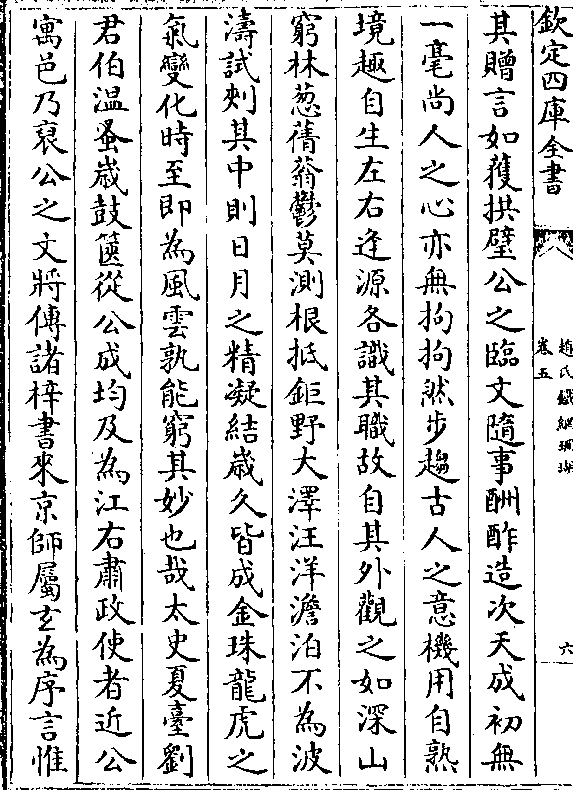 欽定四庫全書
趙氏鐵網珊瑚
卷五
六
其贈言如獲拱璧公之臨文隨事酬酢造次天成初無
一毫尚人之心亦無拘拘然步趨古人之意機用自熟
境趣自生左右逢源各識其職故自其外觀之如深山
窮林葱蒨蓊鬱莫測根抵鉅野大澤汪洋澹泊不為波
濤試刺其中則日月之精凝結歲久皆成金珠龍虎之
氣變化時至即為風雲孰能窮其妙也哉太史夏臺劉
君伯温蚤歲鼓篋從公成均及為江右肅政使者近公
寓邑乃裒公之文將傳諸梓書來京師屬玄為序言惟